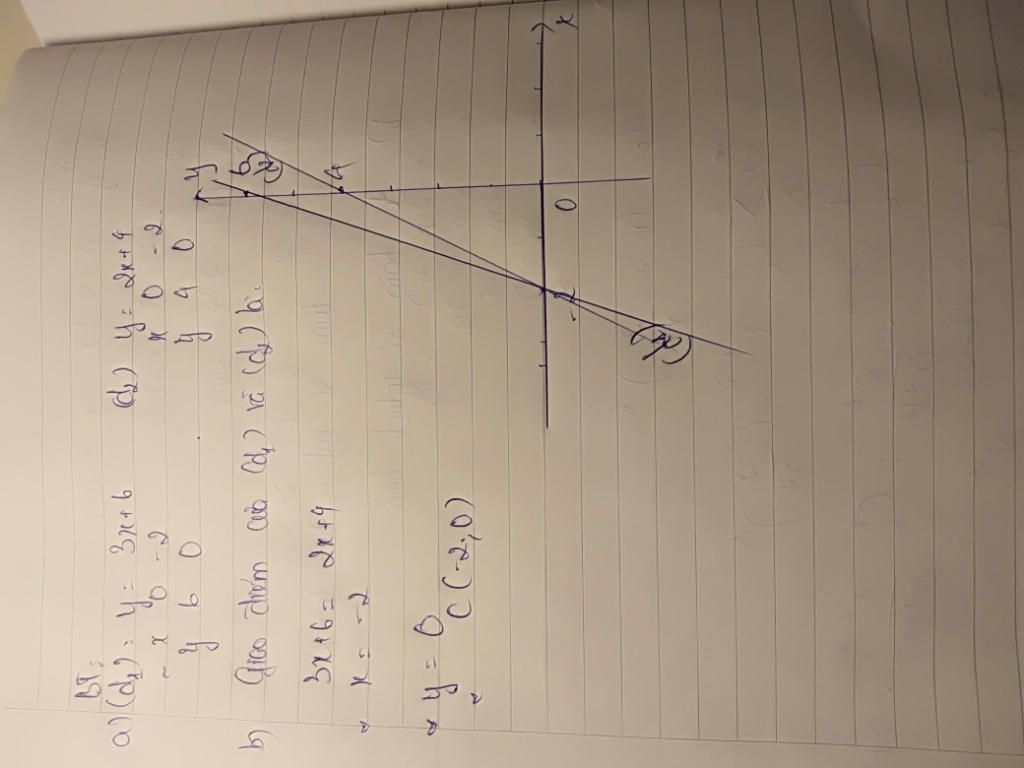 BT:
a) (d1): y = 3x+6 (d2) y = 2x+4
x 0 -2 x 0 -2
y 6 0 y 4 0
b) Giao điểm của (d1) và (d2) là:
3x+6 = 2x+4
x = -2
y = 0
C(-2,0)
y
6
(d2)
4
x
0
-2